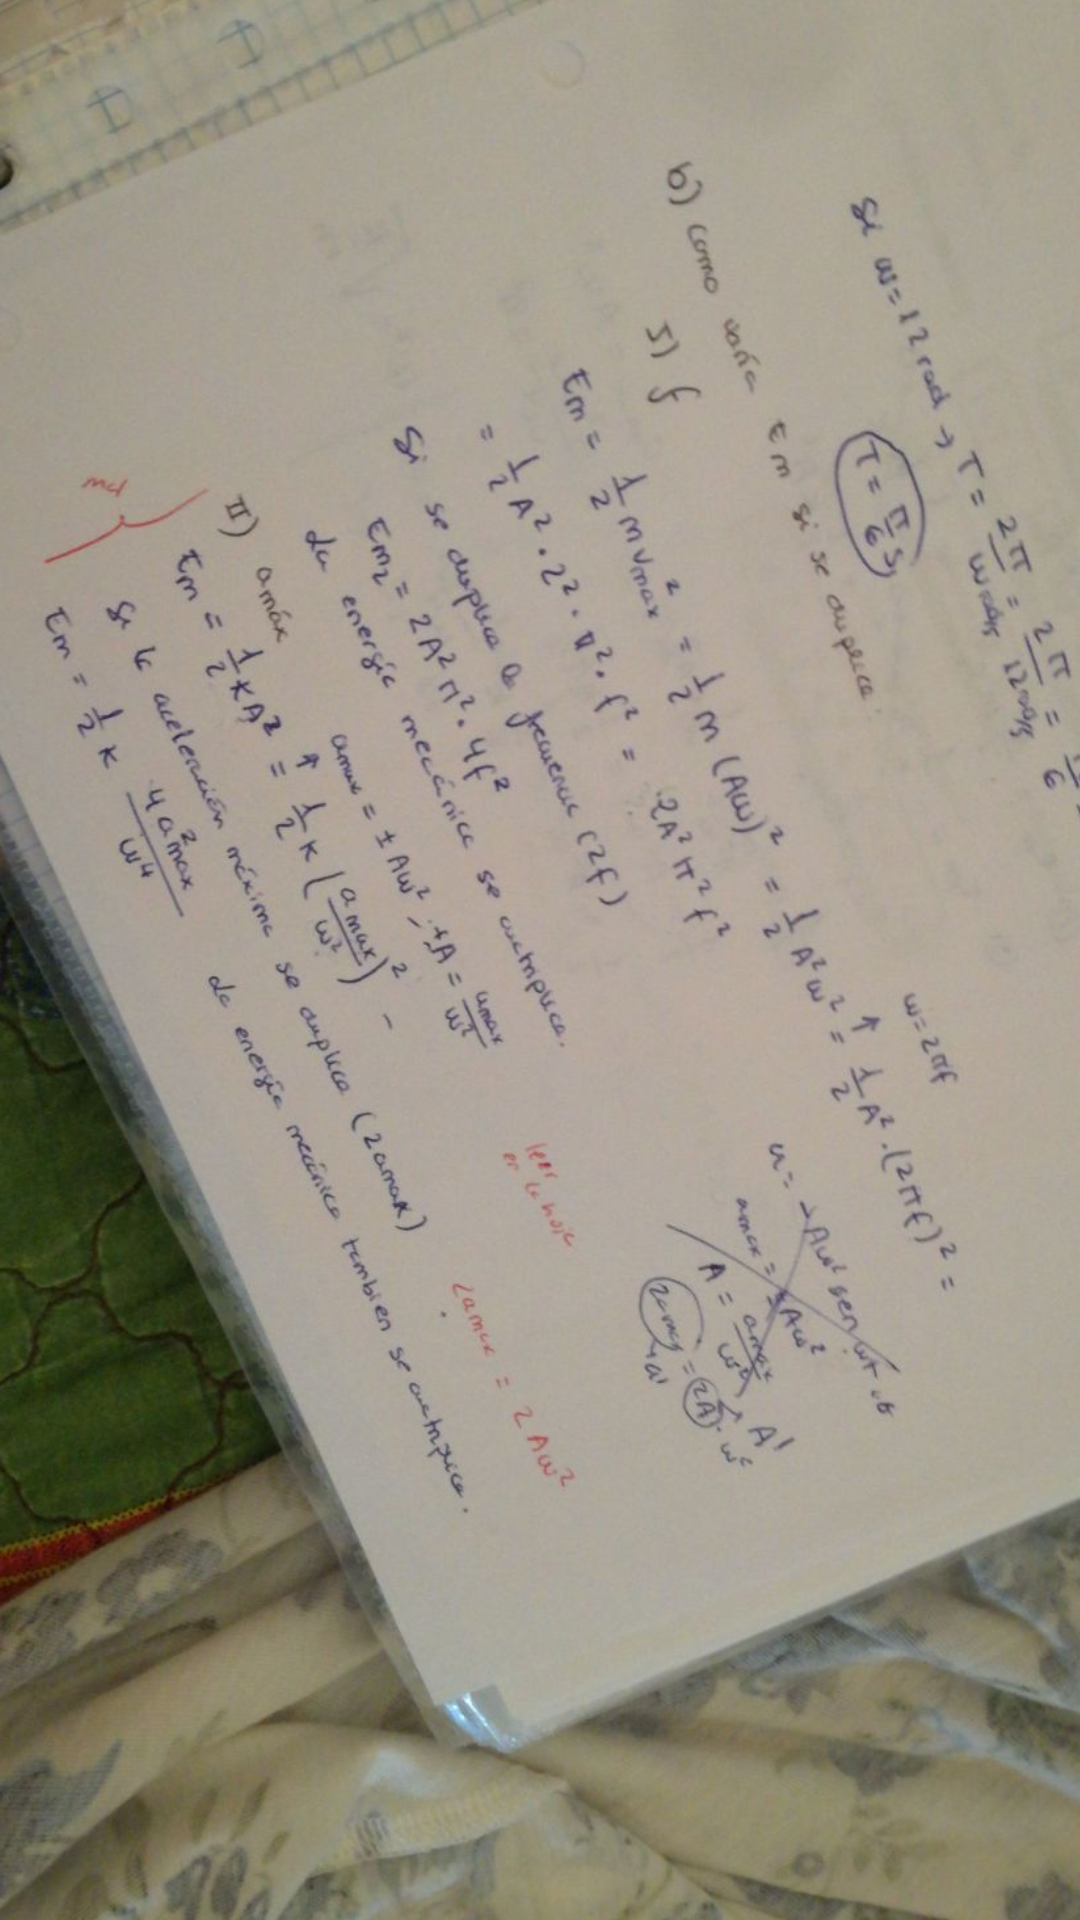 Si ω = 12 rad → T = 2π/ω rad/s = 2π/12 rad/s =
T = π/6 s
b) como varía Em si se duplica:
I) f
ω = 2πf
Em = 1/2 m vmax² = 1/2 m (Aω)² = 1/2 A² ω² = 1/2 A² · (2πf)² =
= 1/2 A² · 2² · π² · f² = 2A² π² f²
Si se duplica la frecuencia (2f)
Em₂ = 2A² π² · 4f²
La energía mecánica se cuatriplica.
a = -Aω² sen ωt
amax = ±Aω²
A = amax/ω²
2amax = (2A) · ω²
A'
leer
en la hoja
2amax = 2Aω²
II) amáx
amax = ±Aω² → ±A = amax/ω²
Em = 1/2 kA² = 1/2 k (amax/ω²)² -
Si la aceleración máxima se duplica (2amax)
Em = 1/2 k 4a²max/ω⁴
La energía mecánica tambien se cuatriplica.
mal